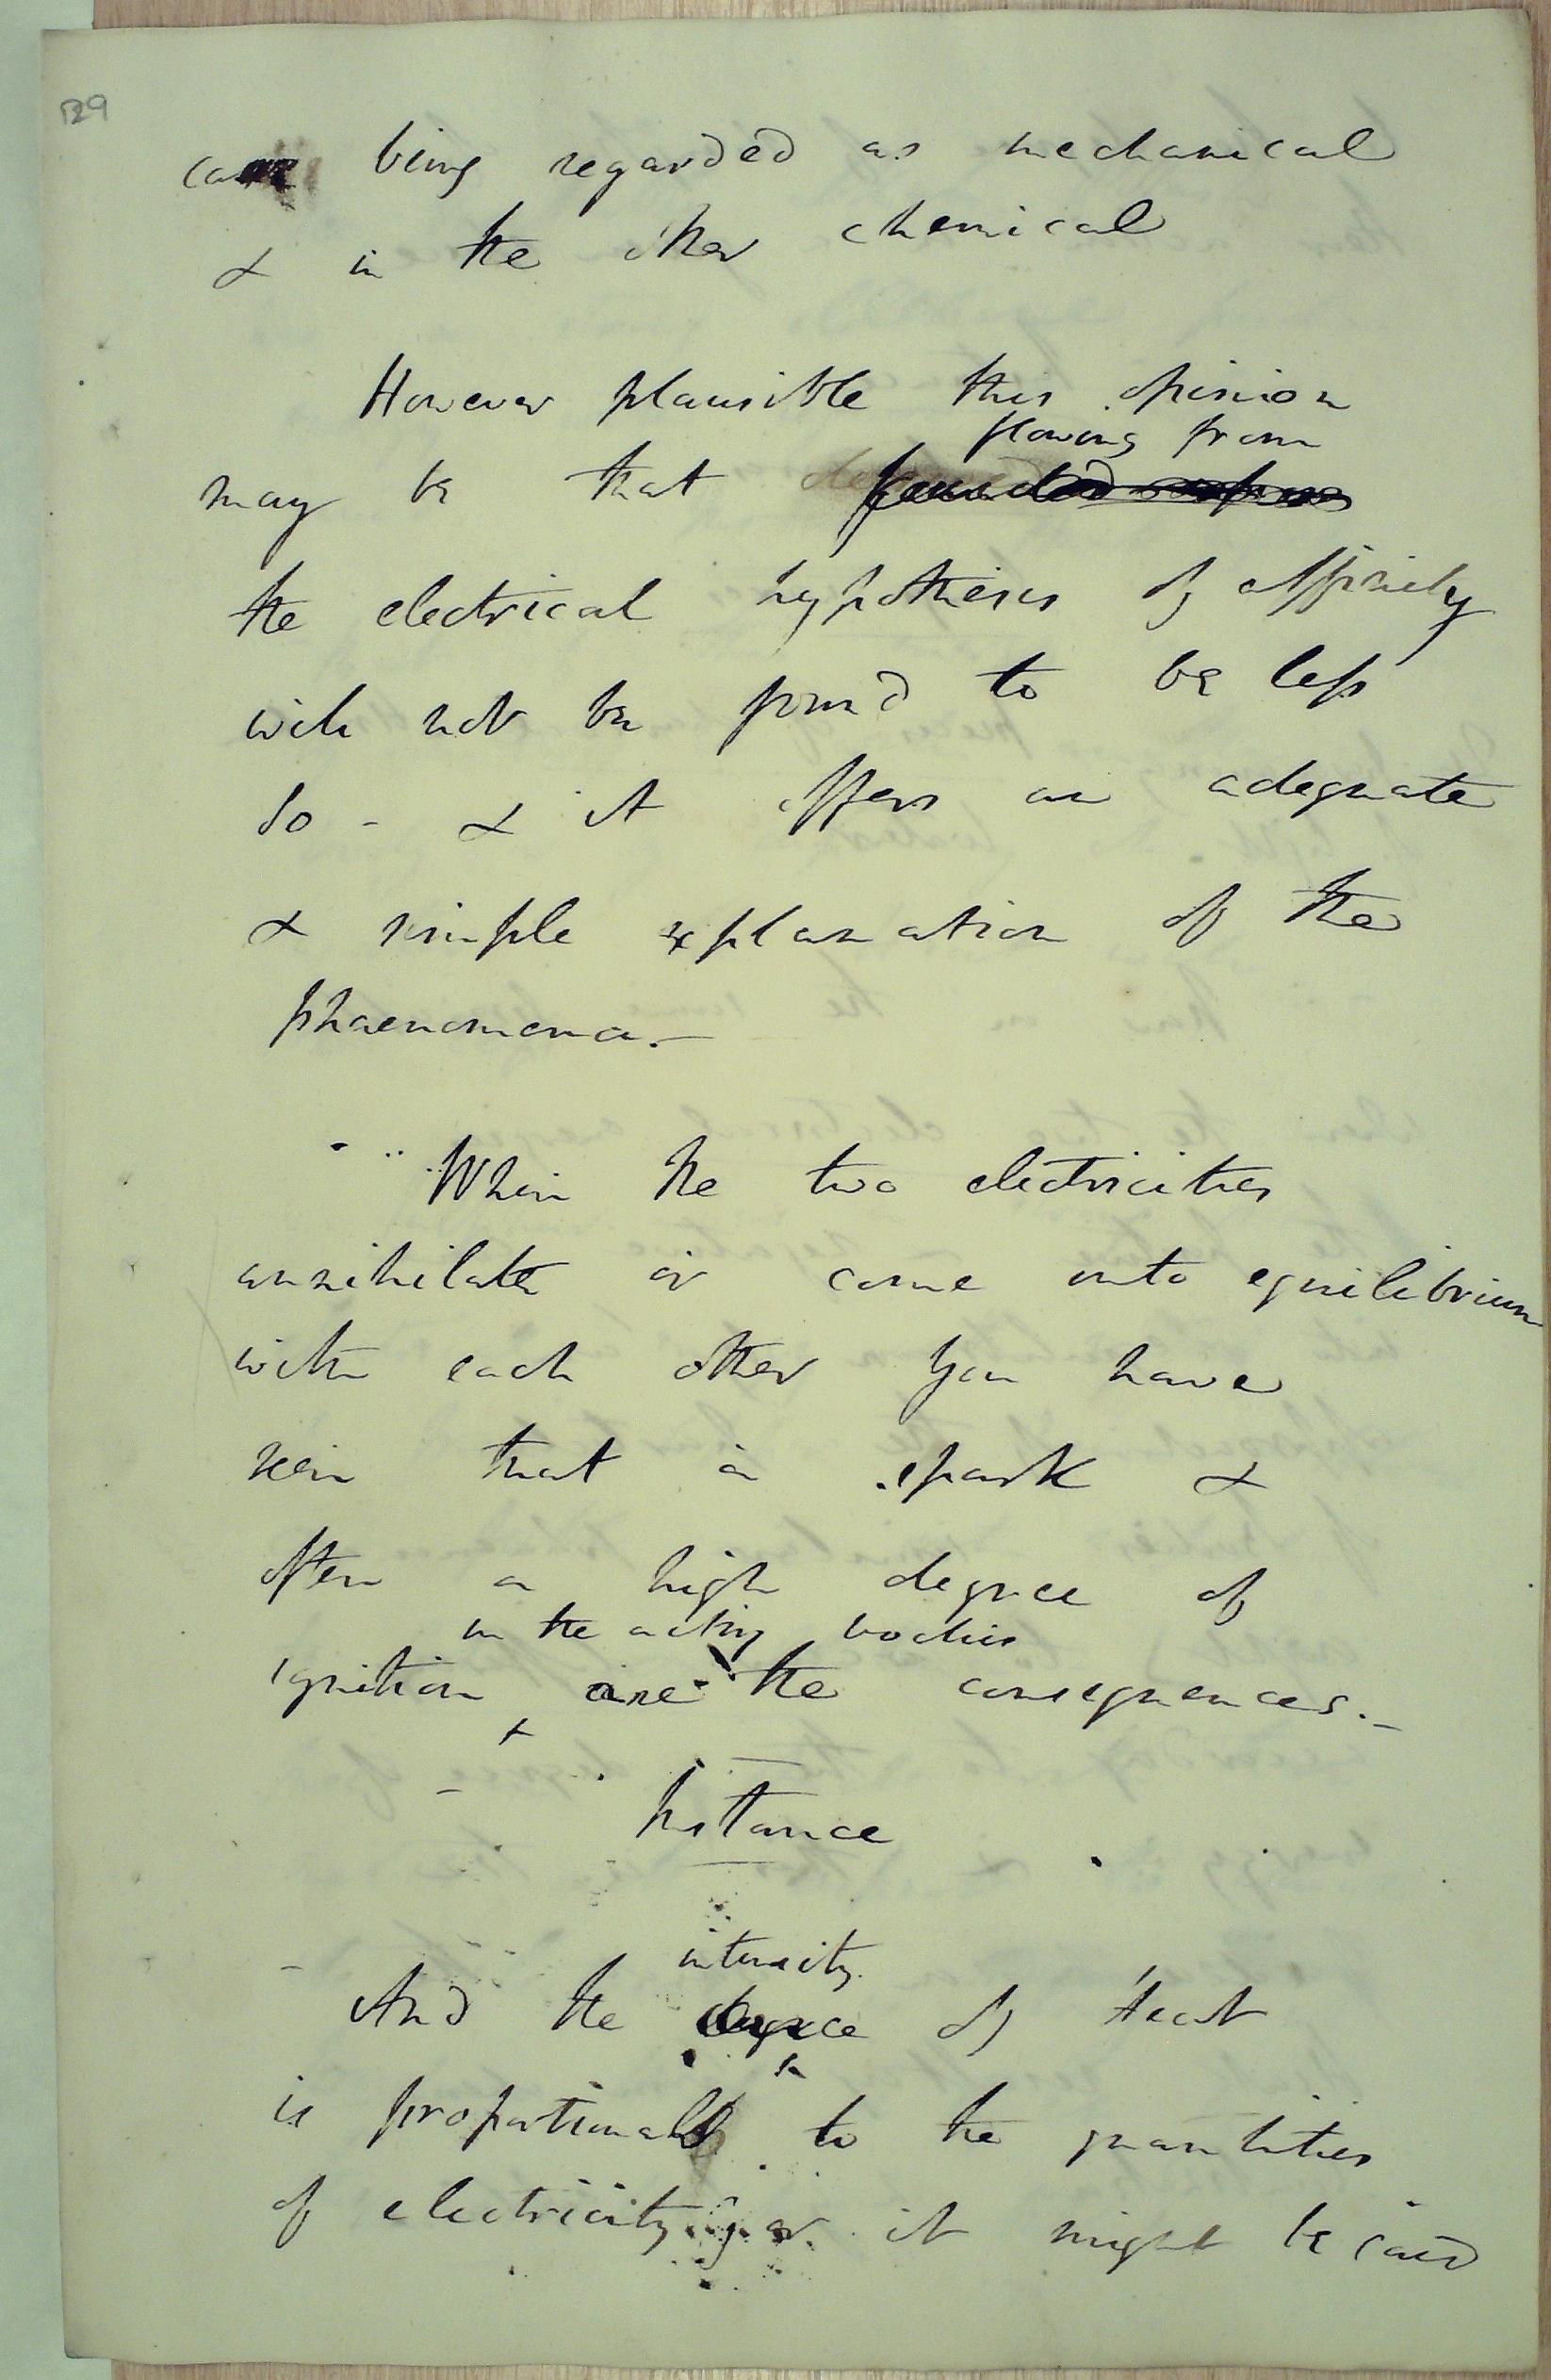 129
case being regarded as mechanical
& in the other chemical
However plausible this opinion
flowing from
may be that founded upon
the electrical hypothesis of affinity
will not be found to be less
so - & it offers an adequate
& simple explanation of the
phaenomena.-
When the two electricities
annihilate or come into equilibrium
with each other you have
seen that a spark &
often a high degree of
in the acting bodies
ignition are the consequences.-
Instance
intensity
And the degree of Heat
is proportional to the quantities
of electricity; or it might be said